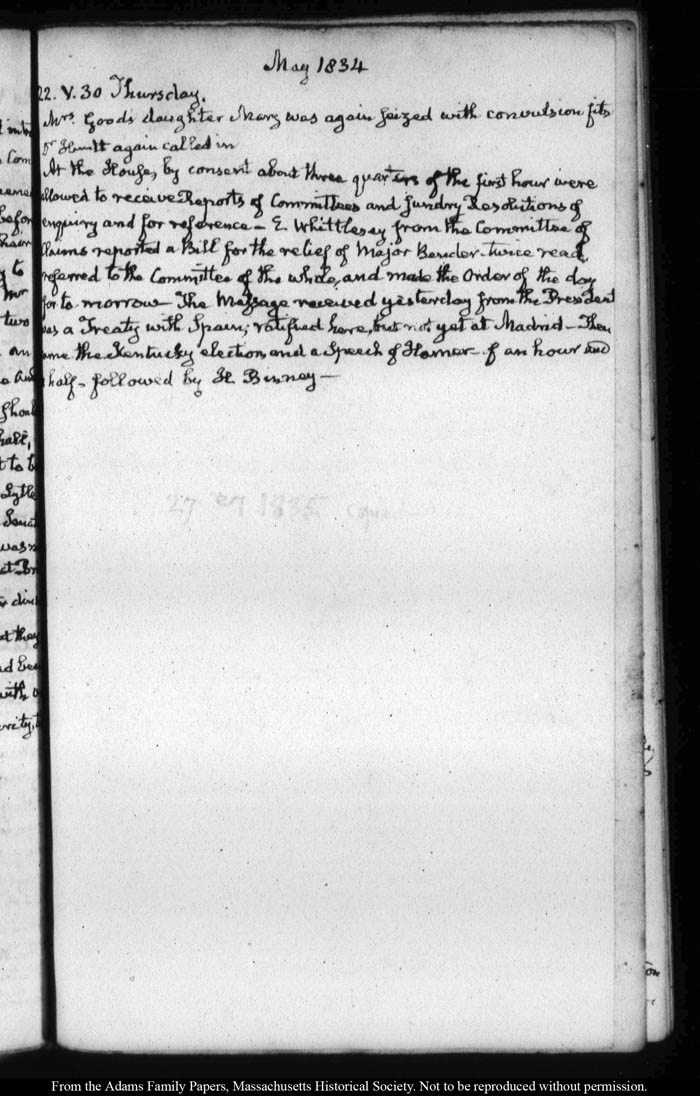 May 1834
22. V.30 Thursday.
Mrs. Goods daughter Mary was again seized with convulsion fits
Dr Huntt again called in
At the House, by consent about three quarters of the first hour were
allowed to receive Reports of Committees and sundry Resolutions of
enquiry and for reference – E Whittlesey from the Committee of
Claims reported a Bill for the relief of Major Bender twice read,
referred to the Committee of the whole, and made the Order of the day
for to morrow – The Message received yesterday from the President
was a Treaty with Spain; ratified here, but not yet at Madrid – Then
came the Kentucky election and a Speech of Hamer of an hour and
half – followed by H. Binney –
27 1835
From the Adams Family Papers, Massachusetts Historical Society. Not to be reproduced without permission.